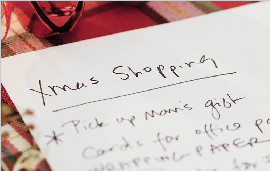 Xmas Shopping
* Pick up Mom's gift
Cards for office
WRAPPING PAPER
for